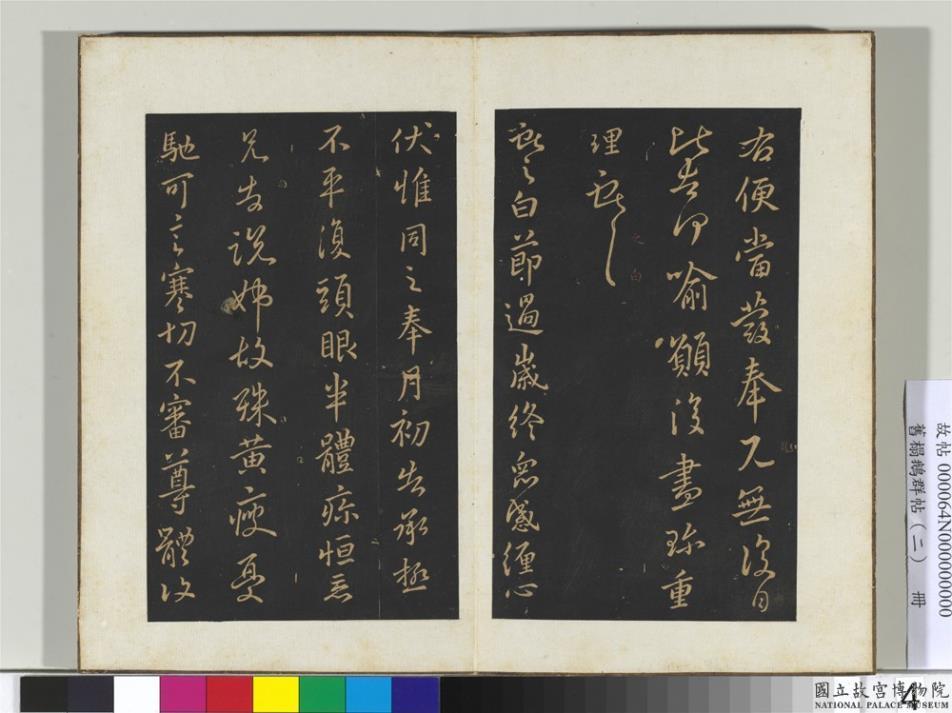 右便當發奉兄無復日
喻願復盡珍重
理獻之
獻之白節過歲終眾感纏心
伏惟同之奉月初告承極
不平復頭眼半體疼恒惡
兄告說姊故殊黃瘦憂
馳可言寒切不審尊體復
故帖 000064N000000000
舊榻鵝群帖(二) 冊
4
國立故宮博物院
NATIONAL PALACE MUSEUM